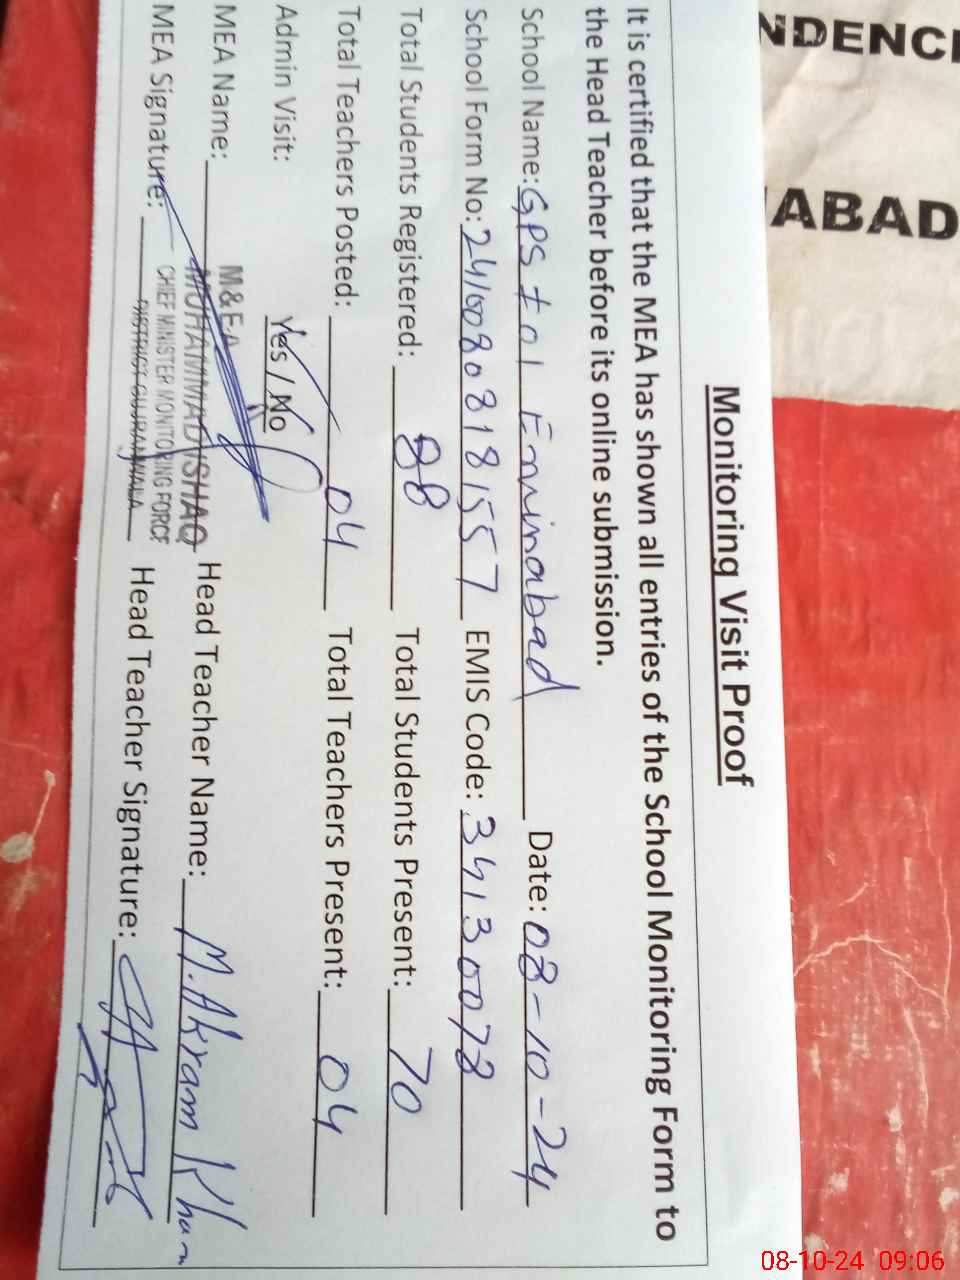 Monitoring Visit Proof
It is certified that the MEA has shown all entries of the School Monitoring Form to
the Head Teacher before its online submission.
School Name: GPS # 01 Eminabad Date: 08-10-24
School Form No: 2410080818157 EMIS Code: 34130078
Total Students Registered: 88 Total Students Present: 70
Total Teachers Posted: 04 Total Teachers Present: 04
Admin Visit: Yes / No
MEA Name: Head Teacher Name: M. Akram Khan
MEA Signature: Head Teacher Signature:
M&EA
MUHAMMAD ISHAQ
CHIEF MINISTER MONITORING FORCE
DISTRICT GUJRANWALA
NDENC
ABAD
08-10-24 09:06